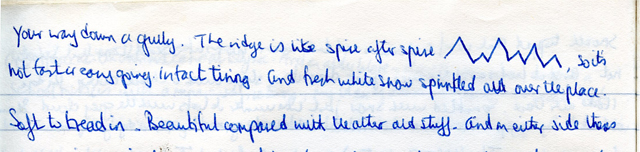 Your way down a gully. The ridge is like spire after spire , so its
not fast or easy going. In fact tiring. And fresh white snow sprinkled all over the place.
Soft to tread in. Beautiful compared with the other old stuff. And on either side